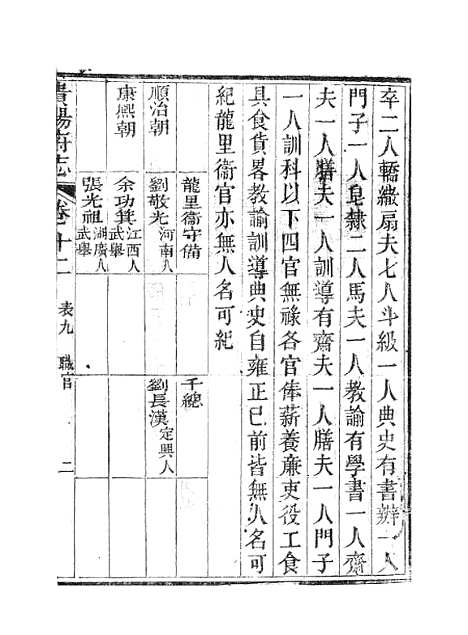 卒二人轎繖扇夫七人斗級一人典史有書辦一人
門子一人皂隸二人馬夫一人教諭有學書一人齋
夫一人膳夫一人訓導有齋夫一人膳夫一人門子
一人訓科以下四官無祿各官俸薪養廉吏役工食
具食貨畧教諭訓導典史自雍正已前皆無人名可
紀龍里衞官亦無人名可紀
龍里衞守備
千總
順治朝
劉敬光河南人
劉長漢定興人
康熙朝
余功箕江西人武舉
張光祖湖廣人武舉
貴陽府志
卷十二
表九
職官
二